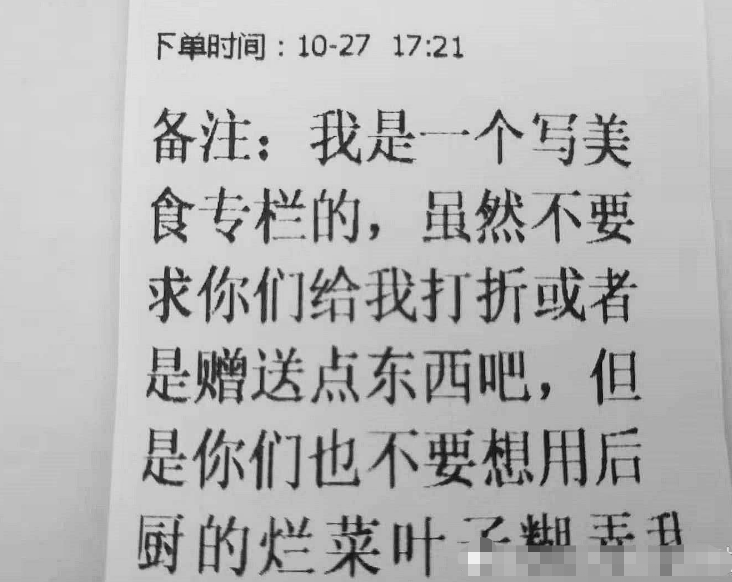 下单时间：10-27 17:21
备注：我是一个写美
食专栏的，虽然不要
求你们给我打折或者
是赠送点东西吧，但
是你们也不要想用后
厨的烂菜叶子糊弄我